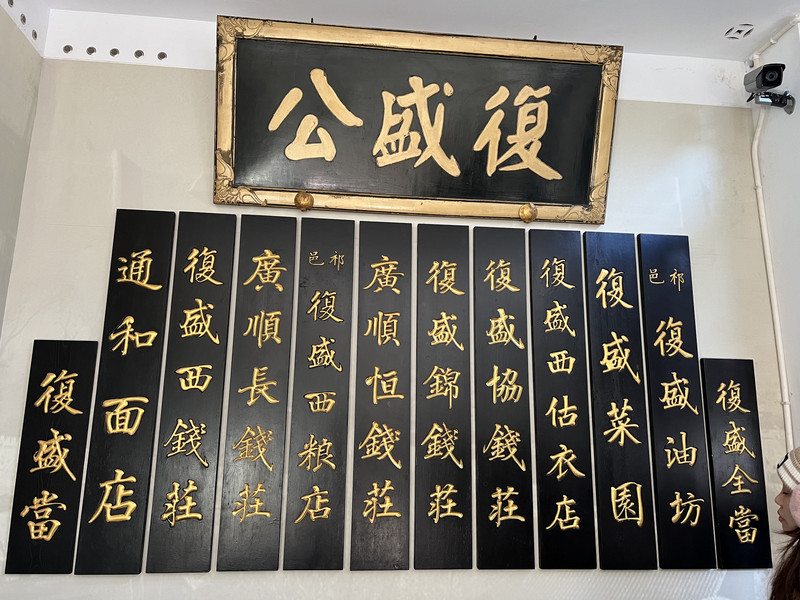 復盛公
復盛全當
祁邑
復盛油坊
復盛菜園
復盛西估衣店
復盛協錢莊
復盛錦錢莊
廣順恒錢莊
祁邑
復盛西粮店
廣順長錢莊
復盛西錢莊
通和面店
復盛當